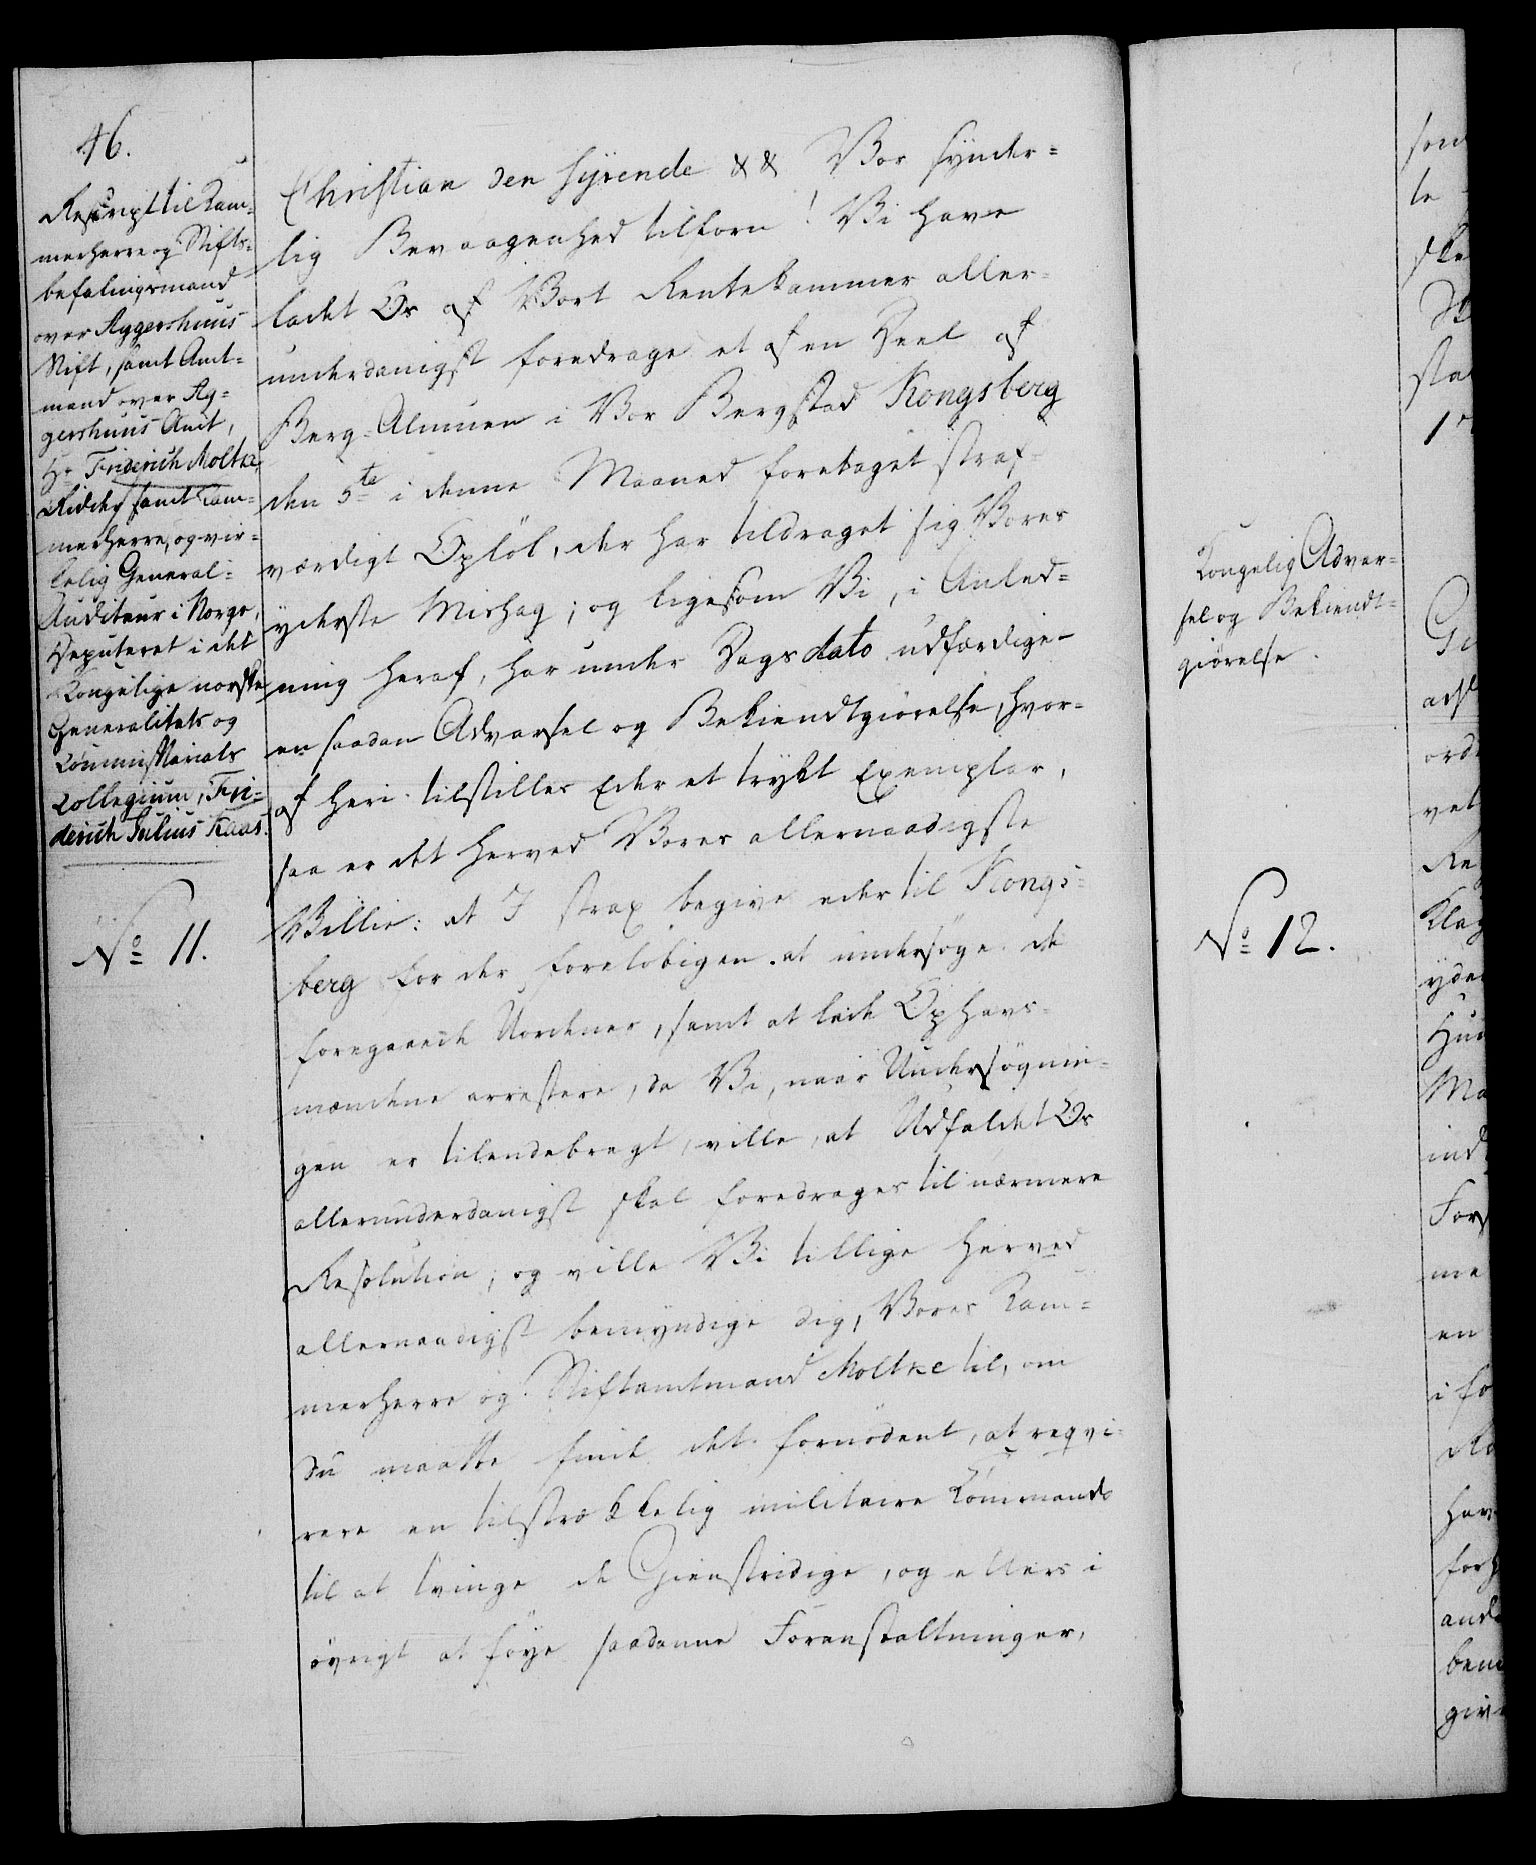 46.
Rescript til Kam-
merherre og Stifts-
befalingsmand
over Aggershuus
Stift, samt Amt-
mand over Ag-
gershuus Amt,
Hr Friderich Moltke,
Ridder, samt Kam-
merherre, og vir-
kelig General-
Auditeur i Norge,
Deputeret i det
Kongelige norske
Generalitets og
Commissariats
Collegium, Fri-
derich Julius Kaas.
No 11.
Christian den Syvende && Vor synder-
lig Bevaagenhed tilforn! Vi have
ladet Os af Vort Rentekammer aller-
underdanigst foredrage et af en Deel af
Berg-Almuen i Vor Bergstad Kongsberg
den 5te i denne Maaned foretaget straf-
værdigt Opløb, der har tildraget sig Vores
yderste Mishag; og ligesom Vi, i Anled-
ning heraf, har under Dags dato udfærdige
en saadan Advarsel og Bekiendtgiørelse, hvor-
af heri tilstilles Eder et trykt Exemplar,
saa er det herved Vores allernaadigste
Villie: at I strax begive eder til Kongs-
berg for der foreløbigen at undersøge de
foregaaede Uordener, samt at lade Ophavs-
mændene arrestere, da Vi, naar Undersøgnin-
gen er tilendebragt, ville, at Udfaldet Os
allerunderdanigst skal foredrages til nærmere
Resolution; og ville Vi tillige herved
allernaadigst bemyndige dig, Vores Kam-
merherre og Stiftamtmand Moltke til, om
du maatte finde det fornødent, at reqvi-
rere en tilstrækkelig militaire Commando
til at tvinge de Gienstridige, og ellers i
øvrigt at føye saadanne Foranstaltninger,
Kongelig Advar-
sel og Bekiendt-
giørelse.
No 12.